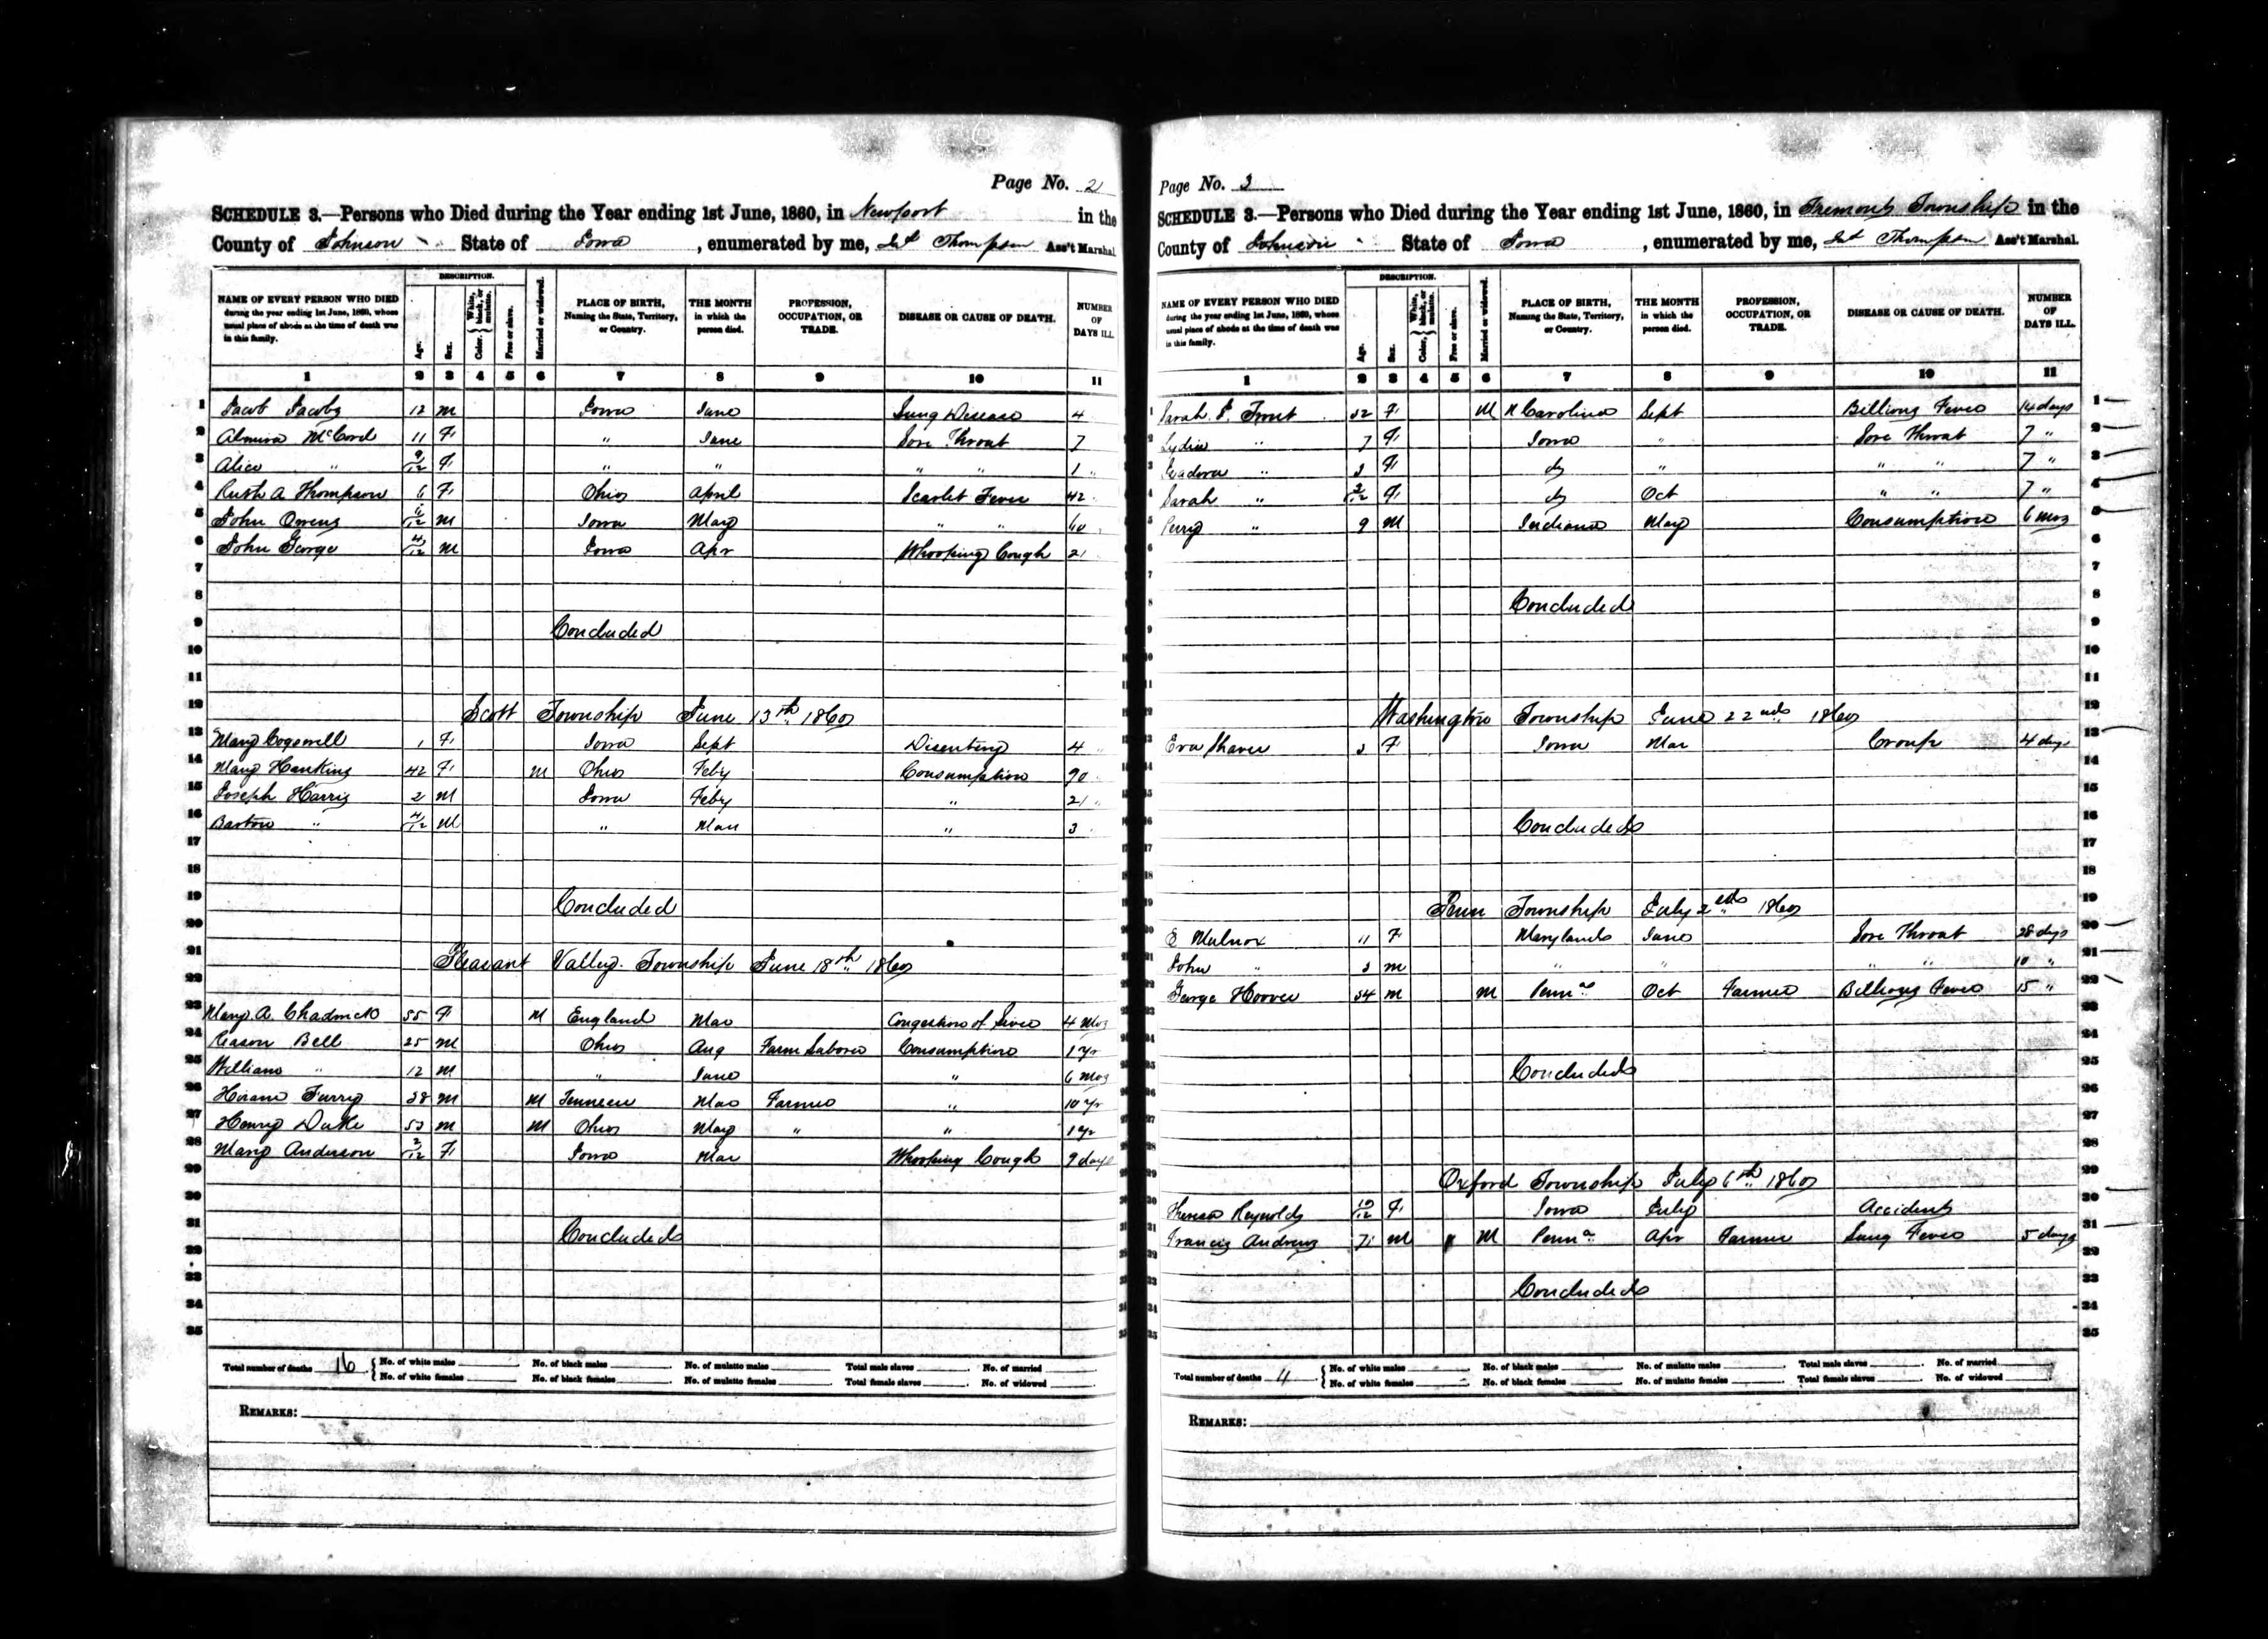 Page No. 2
SCHEDULE 3.—Persons who Died during the Year ending 1st June, 1860, in Newport in the
County of Johnson State of Iowa, enumerated by me, Thompson Ass't Marshal.
NAME OF EVERY PERSON WHO DIED during the year ending 1st June, 1860, whose usual place of abode at the time of death was in this family.
DESCRIPTION.
Age. Sex. Color, { White, black, or mulatto. Free or slave. Married or widowed.
PLACE OF BIRTH, Naming the State, Territory, or Country.
THE MONTH in which the person died.
PROFESSION, OCCUPATION, OR TRADE.
DISEASE OR CAUSE OF DEATH.
NUMBER OF DAYS ILL.
1 2 3 4 5 6 7 8 9 10 11
1 Jacob Jacobs 12 M Iowa June Lung Disease 4
2 Almira McCord 11 F " June Sore Throat 7
3 Alice " 9/12 F " " " " 1 "
4 Ruth A Thompson 6 F Ohio April Scarlet Fever 42
5 John Owens M Iowa May " "
6 John George 4/12 M Iowa Apr Whooping Cough 21
7
8
9 Concluded
10
11
12 Scott Township June 13th 1860
13 Mary Cogswell 1 F Iowa Sept Disentery 4 "
14 Mary Hankins 42 F M Ohio Feby Consumption 90
15 Joseph Harris 2 M Iowa Feby " 21 "
16 Barton " 4/12 M " Mar " 3
17
18
19 Concluded
20
21 Pleasant Valley Township June 18th 1860
22
23 Mary A. Chadwick 55 F M England Mar Congestion of Liver 4 Mos
24 Cason Bell 25 M Ohio Aug Farm Laborer Consumption 1 yr
25 William " 12 M " June " 6 Mos
26 Hiram Furry 38 M M Mar Farmer " 10 yr
27 Henry Duke 53 M M Ohio May " " 1 yr
28 Mary Anderson F Iowa Mar Whooping Cough 9 days
29
30
31 Concluded
32
33
34
35
Total number of deaths 16 { No. of white males No. of black males No. of mulatto males Total male slaves No. of married
No. of white females No. of black females No. of mulatto females Total female slaves No. of widowed
REMARKS:
Page No. 3
SCHEDULE 3.—Persons who Died during the Year ending 1st June, 1860, in Fremont Township in the
County of Johnson State of Iowa, enumerated by me, Thompson Ass't Marshal.
NAME OF EVERY PERSON WHO DIED during the year ending 1st June, 1860, whose usual place of abode at the time of death was in this family.
DESCRIPTION.
Age. Sex. Color, { White, black, or mulatto. Free or slave. Married or widowed.
PLACE OF BIRTH, Naming the State, Territory, or Country.
THE MONTH in which the person died.
PROFESSION, OCCUPATION, OR TRADE.
DISEASE OR CAUSE OF DEATH.
NUMBER OF DAYS ILL.
1 2 3 4 5 6 7 8 9 10 11
1 Sarah F M N Carolina Sept Billious Fever 14 days
2 Lydia " 7 F Iowa " Sore Throat 7 "
3 " 3 F do " " " 7 "
4 Sarah " F do Oct " " 7 "
5 Perry " 9 M Indiana May Consumption 6 mos
6
7
8 Concluded
9
10
11
12 Washington Township June 22nd 1860
13 Eva Shaver 3 F Iowa Mar Croup 4 days
14
15
16 Concluded
17
18
19 Penn Township July 2nd 1860
20 E Mulnox 11 F Maryland June Sore Throat 28 days
21 John " 3 M " " " " 10 "
22 George Hoover 34 M M Penna Oct Farmer Billious Fever 15 "
23
24
25 Concluded
26
27
28
29 Oxford Township July 6th 1860
30 Theresa Reynolds 10/12 F Iowa July Accident
31 Francis Andrews 71 M M Penna Apr Farmer Lung Fever 5 days
32
33 Concluded
34
35
Total number of deaths { No. of white males No. of black males No. of mulatto males Total male slaves No. of married
No. of white females No. of black females No. of mulatto females Total female slaves No. of widowed
REMARKS: